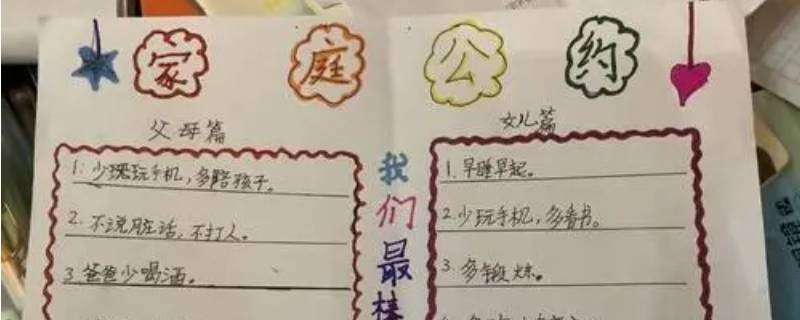 家庭公约
父母篇
1. 少玩手机,多陪孩子。
2. 不说脏话,不打人。
3. 爸爸少喝酒。
我们最棒
女儿篇
1. 早睡早起。
2. 少玩手机,多看书。
3. 多锻炼。